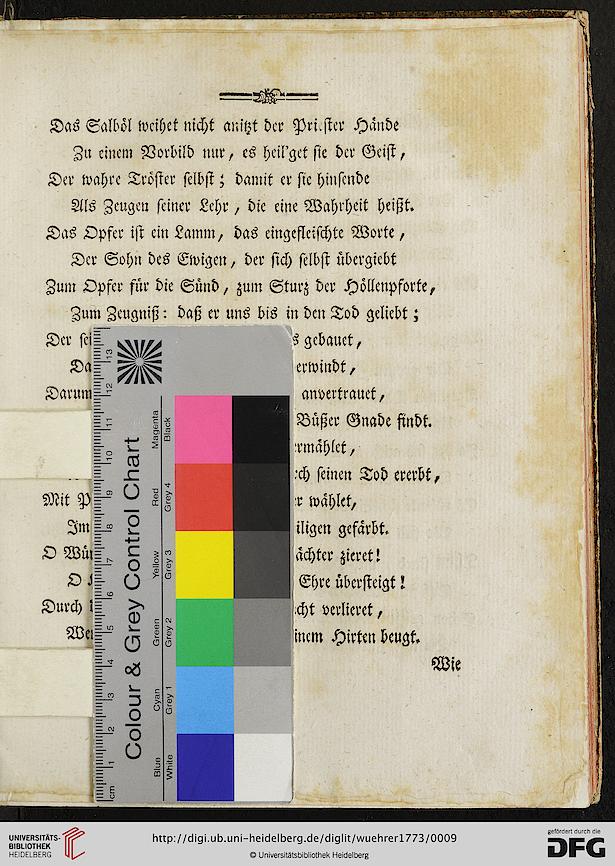 Das Salböl weihet nicht anitzt der Priester Hände
Zu einem Vorbild nur, es heil'get sie der Geist,
Der wahre Tröster selbst; damit er sie hinsende
Als Zeugen seiner Lehr, die eine Wahrheit heißt.
Das Opfer ist ein Lamm, das eingefleischte Worte,
Der Sohn des Ewigen, der sich selbst übergiebt
Zum Opfer für die Sünd, zum Sturz der Höllenpforte,
Zum Zeugniß: daß er uns bis in den Tod geliebt;
Der gebauet,
Darum anvertrauet,
Büßer Gnade findt.
seinen Tod ererbt,
Mit wählet,
gefärbt.
O zieret!
O Ehre übersteigt!
Durch verlieret,
Hirten beugt.
Wie
Colour & Grey Control Chart
Blue Cyan Green Yellow Red Magenta
White Grey 1 Grey 2 Grey 3 Grey 4 Black
cm 1 2 3 4 5 6 7 8 9 10 11 12 13
UNIVERSITÄTS-
BIBLIOTHEK
HEIDELBERG
http://digi.ub.uni-heidelberg.de/diglit/wuehrer1773/0009
© Universitätsbibliothek Heidelberg
gefördert durch die
DFG